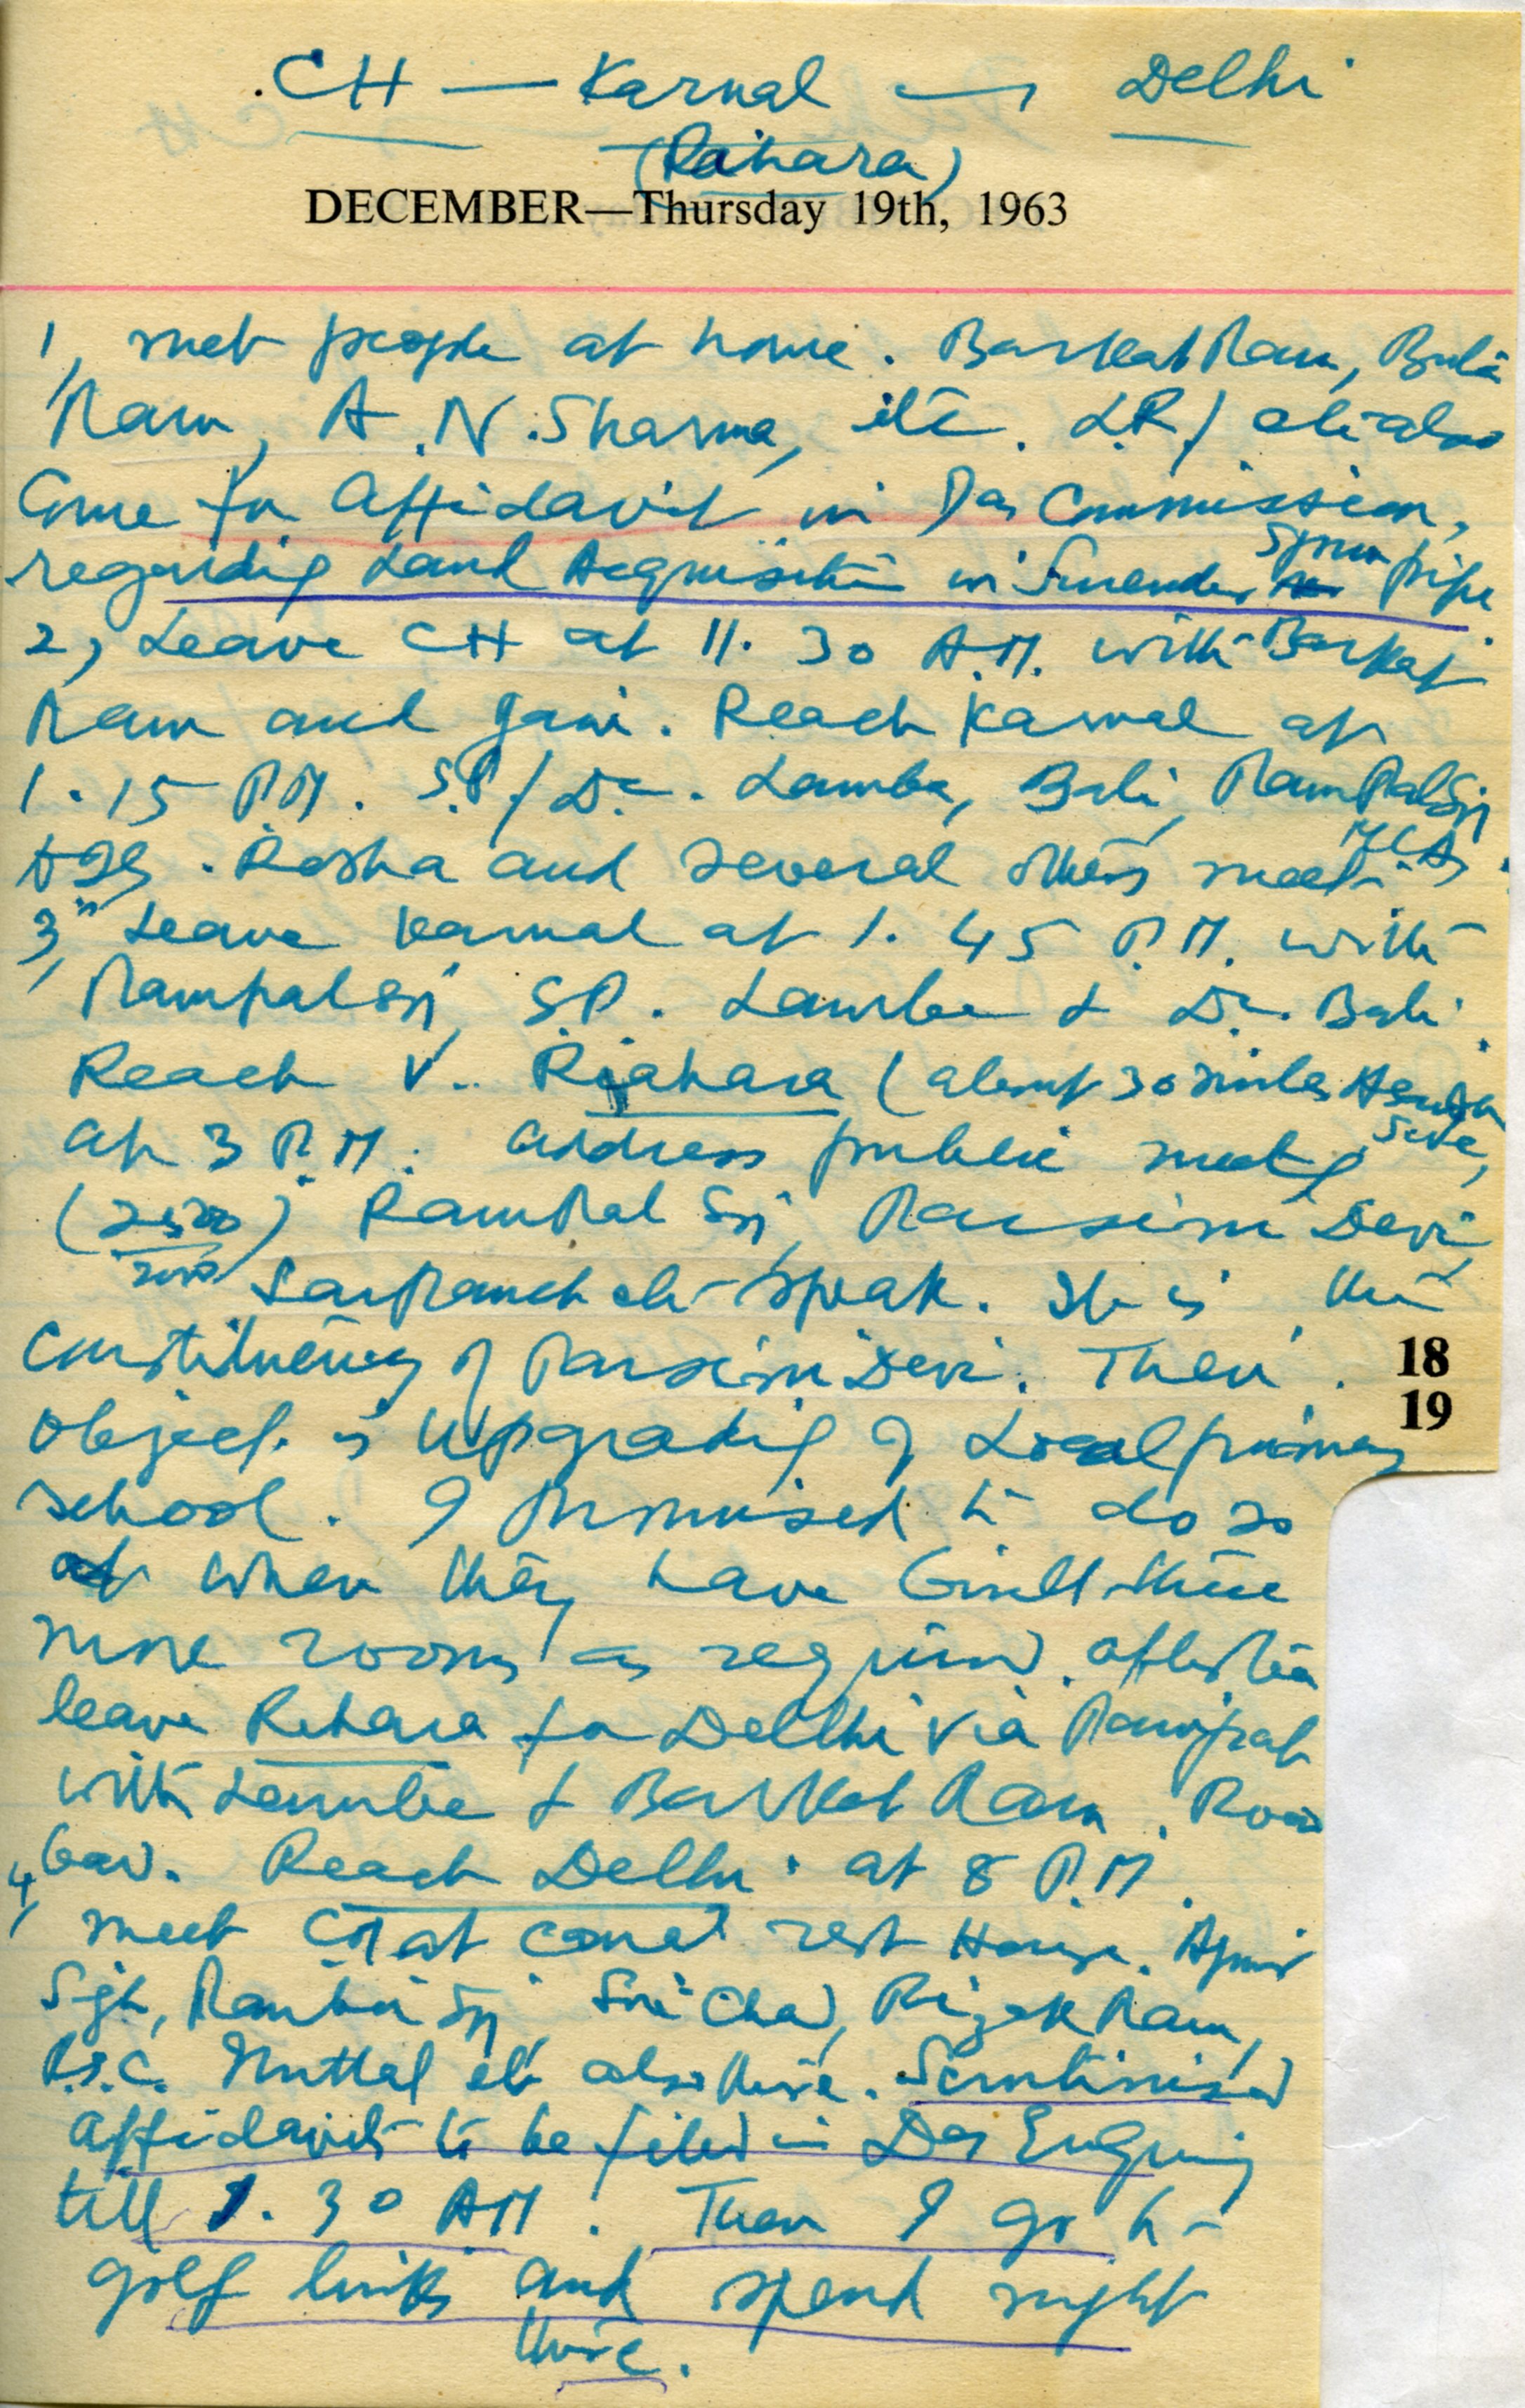 CH — Karnal — Delhi
(Rahara)
DECEMBER—Thursday 19th, 1963
1, met people at home. Barkat Ram,
Ram, A.N. Sharma, etc. L.R./ etc also
Come for Affidavit in Das Commission,
regarding Land Acquisition in Surender
2, Leave CH at 11.30 A.M. with Barkat
Ram and Gani. Reach Karnal at
1.15 P.M. S.P/Dc. Lamba, Bali, RamPal Singh
Rosha and several others meet
3, Leave Karnal at 1.45 P.M. with
Rampal Singh, S.P. Lamba & Dc. Bali.
Reach V. Riahara (about 30 miles
at 3 P.M. address public meeting
(2500) RamPal Singh, Parsini Devi,
SarPanch etc speak. It is the
Constituency of ParsiniDevi. Their
object is upgrading of Local primary
school. I promised to do so
when they have built three
more rooms as required. after tea
leave Rehara for Delhi via Panipat
with Lamba & Barkat Ram. Road
bad. Reach Delhi at 8 P.M.
4, meet CM at canal rest House.
Singh, Ranbir Singh, Sri Chand, Rizak Ram,
etc also there. Scrutinised
Affidavits to be filed in Das Enquiry
till 1.30 AM. Then I go to
golf links and spend night
there.
18
19